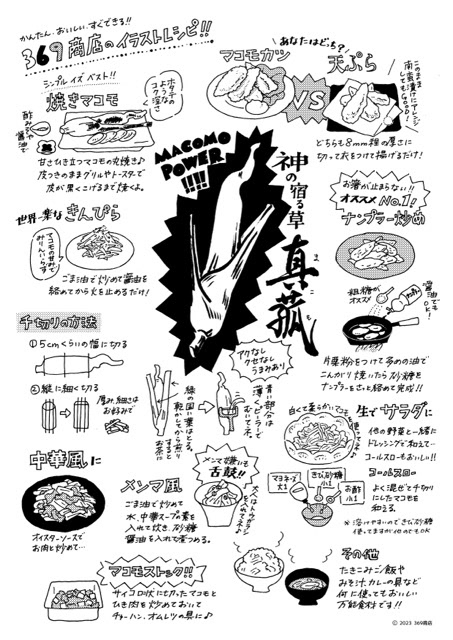 かんたん、おいしい、すぐできる!!
369商店のイラストレシピ!!
シンプル イズ ベスト!!
焼きマコモ
ホタテの
ような
コク深さ
酢みそや
醤油で
甘さひき立つマコモの丸焼き♪
皮つきのままグリルやトースターで
皮が黒くこげるまで焼くよ。
あなたはどっち?
マコモカツ
VS
天ぷら
このまま
南蛮漬けにアレンジ
しても
Good!
どちらも8mm程の厚さに
切って衣をつけて揚げるだけ!
MACOMO
POWER
!!!!
神の宿る草
真菰
まこも
世界一楽な きんぴら
マコモの甘みで
みりんいらず
ごま油で炒めて醤油を
絡めてから火を止めるだけ!
お箸が止まらない!!
オススメNo.1!
ナンプラー炒め
粗糖が
オススメ
醤油でも
OK!
片栗粉をつけて多めの油で
こんがり焼いたら砂糖を
ナンプラーをさっと絡めて完成!!
千切りの方法
①5cmくらいの幅に切る
②縦に細く切る
厚み、細さは
お好みで
アクなし
クセなし
うまみあり
緑の固い葉はとる。
乾かしてから煎り
すると
お茶に
青い部分は
薄くピーラーで
むいてネ。
白くて柔らかいでしょ
使ってネ♪
生で サラダに
他の野菜と一緒に
ドレッシングで和えて…
コールスローもおいしい!!
中華風に
オイスターソースで
お肉と炒めて…
メンマ風
メンマ嫌いも
舌鼓!!
ごま油で炒めて
水、中華スープの素を
入れて炊き、砂糖
醤油を入れて煮つめる。
マヨネーズ
大1
きび砂糖
小1
お酢
小1
コールスロー
よく混ぜて千切り
にしたマコモを
和える。
※溶けやすいのできび砂糖
使ってますが他のでもOK
マコモストック!!
サイコロ状にも切ったマコモと
ひき肉を炒めておいて
チャーハン、オムレツの具に♪
その他
たきこみご飯や
みそ汁、カレーの具など
何に使ってもおいしい
万能食材です!!
© 2023 369商店